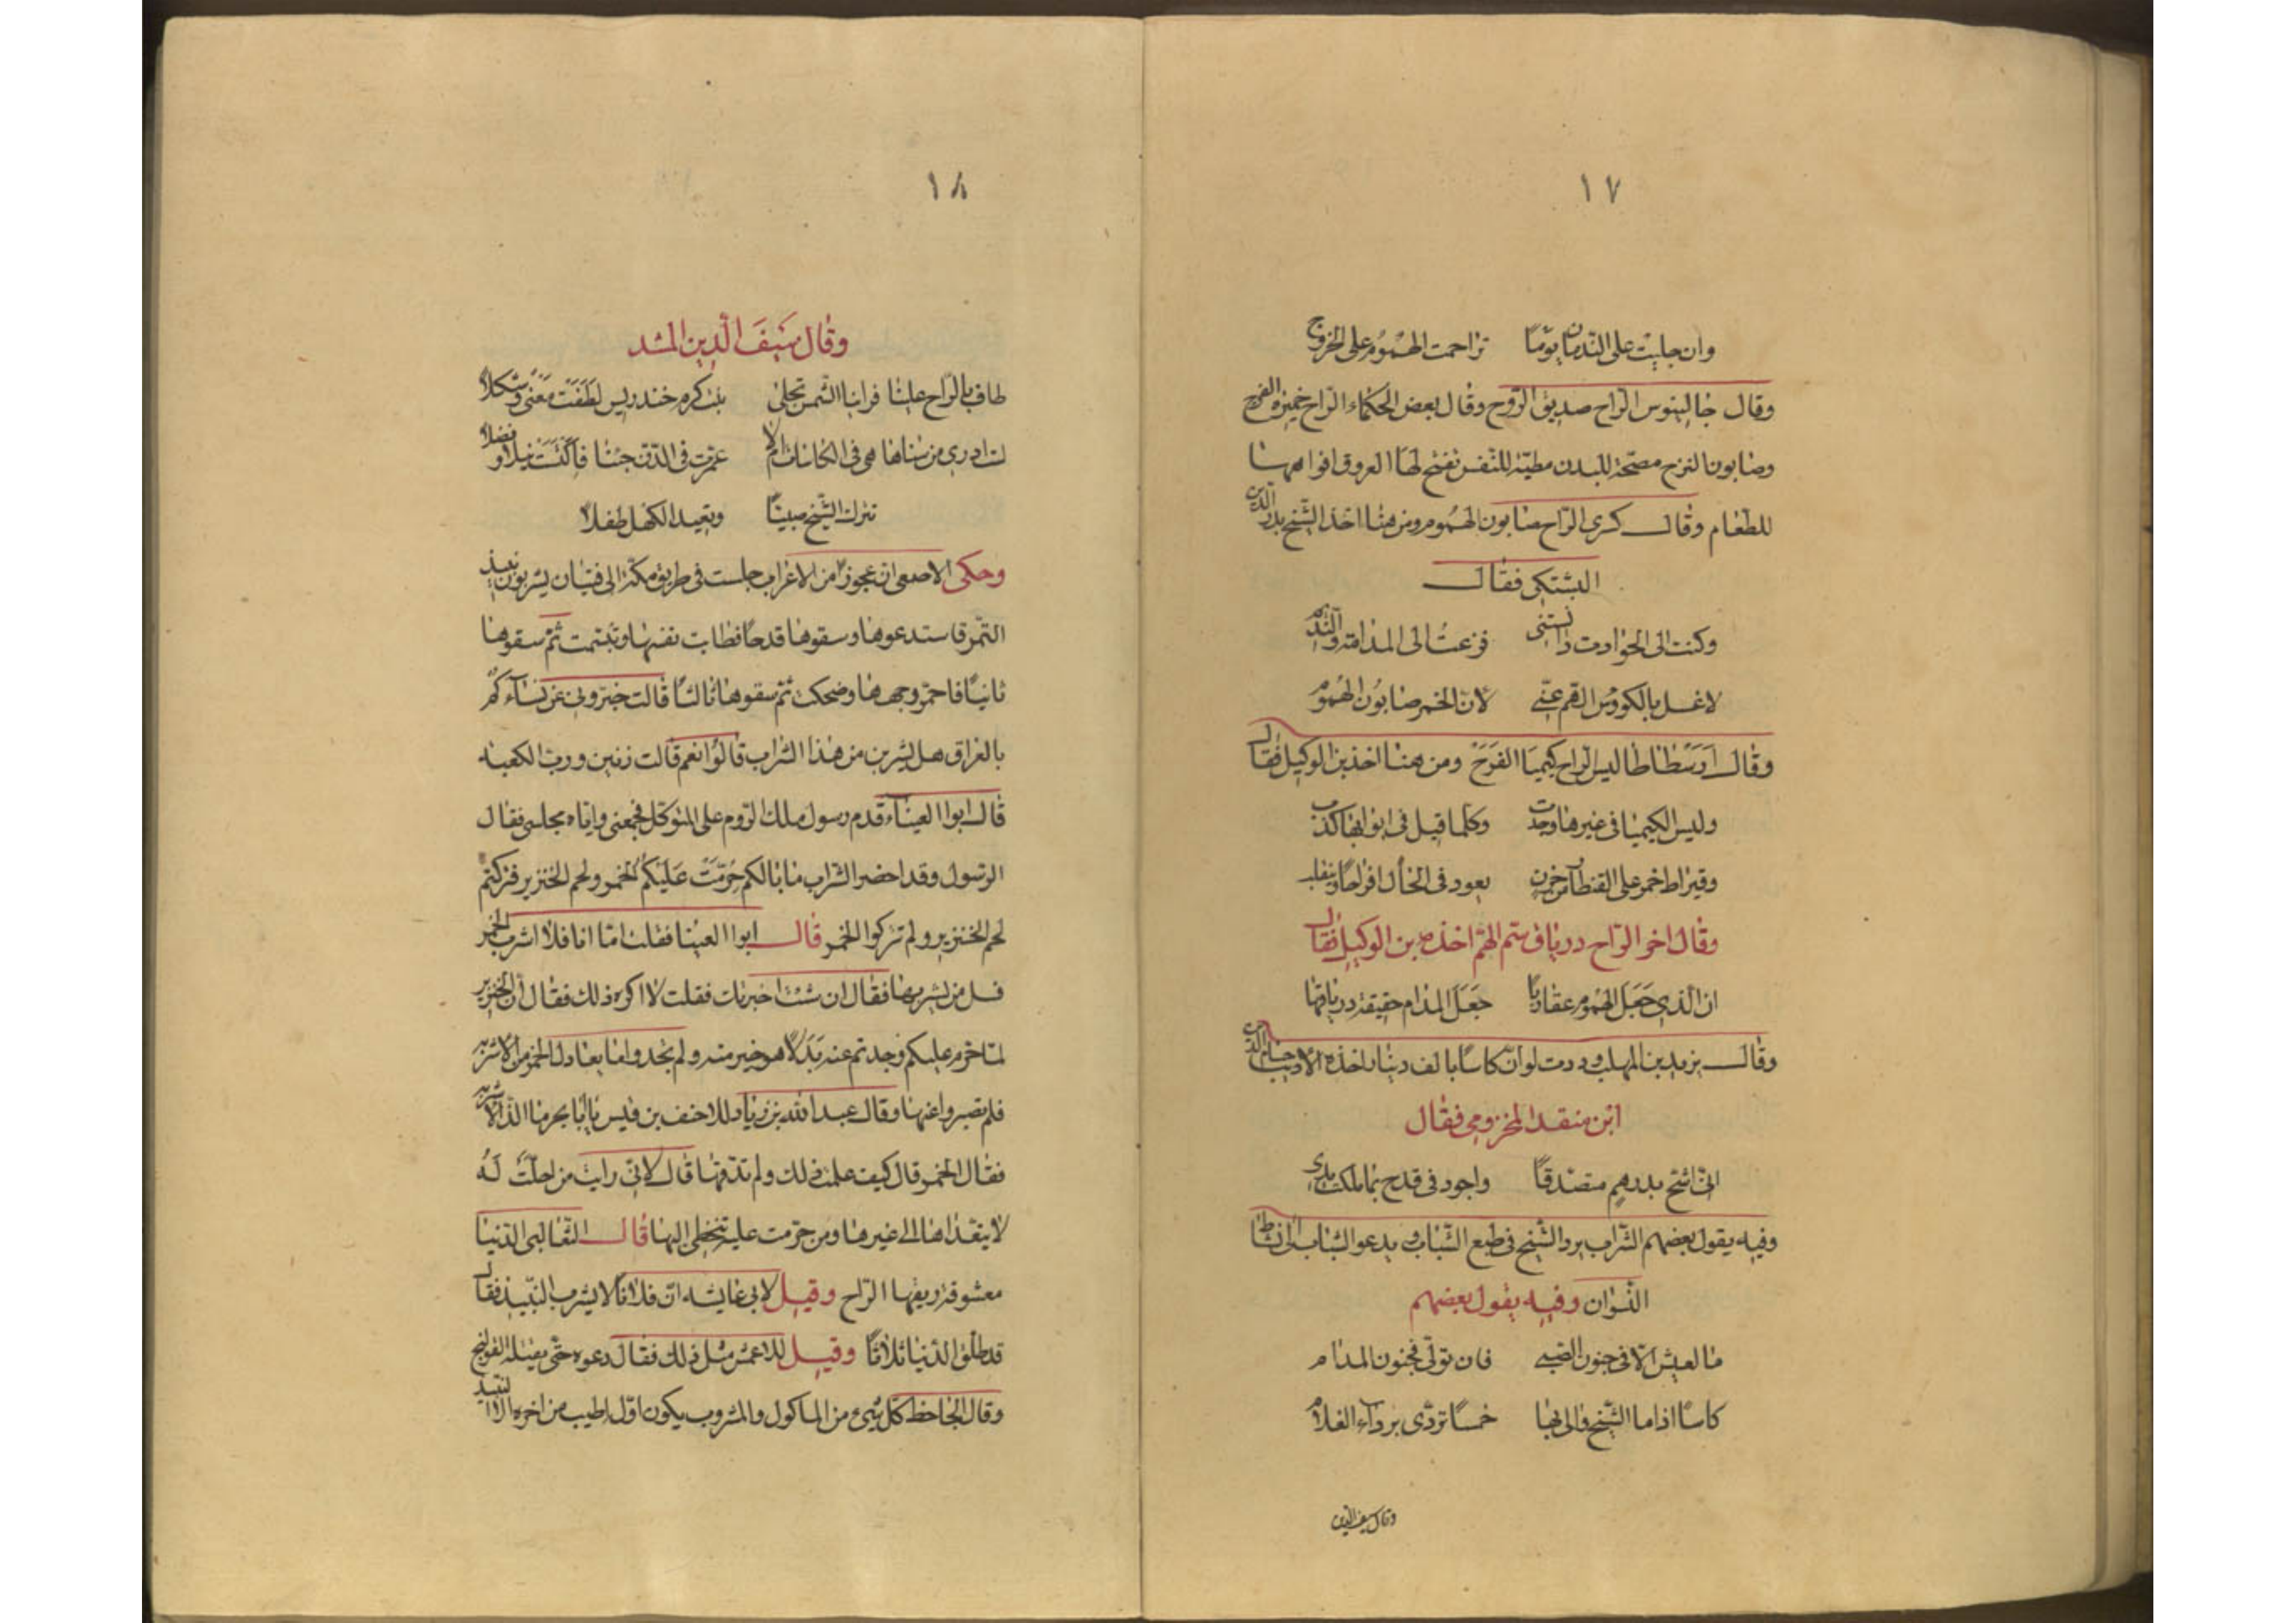 ١٧
وان جليت على الندمان يومًا تزاحمت الهموم على الخروج
وقال جالينوس الراح صديق الروح وقال بعض الحكماء الراح خميرة الفرح
وصابون الترح مصحة للبدن مطيبة للنفس تفتح لها العروق افواهها
للطعام وقال كسرى الراح صابون الهموم ومن هنا اخذ الشيخ بدر الدين
البشتكى فقال
وكنت الى الحوادث فزعت الى المدامة والنديم
لاغسل بالكؤوس الهم عنى لان الخمر صابون الهموم
وقال ارسطاطاليس الراح كيميا الفرح ومن هنا اخذ بن الوكيل فقال
وليس الكيميا فى غيرها وجدت وكلما قيل فى ابوابها كذب
وقيراط خمر على القنطار من حزن يعود فى الحال افراحًا وينقلب
وقال اخر الراح درياق سم الهم اخذه بن الوكيل فقال
ان الذى جعل الهموم عقاربا جعل المدام حقيقة درياقها
وقال يزيد بن المهلب وددت لو ان كاسًا بالف دينار اخذه الاديب حسام الدين
ابن منقد المخزومى فقال
انى اشح بدرهم متصدقًا واجود فى قدح بما ملكت يدى
وفيه يقول بعضهم الشراب يرد الشيخ فى طبع الشباب و يدعو الشباب الى نشاط
النشوان وفيه يقول بعضهم
ما العيش الا فى جنون الصبى فان تولى فجنون المدام
كاسًا اذا ما الشيخ والى بها خمسًا تردى برداء الغلام
وقال سيف الدين
١٨
وقال سيف الدين المشد
طاف بالراح علينا فراينا الشمس تجلى بنت كرم خندريس لطفت معنى وشكلا
لست ادرى من سناها هى فى الكاسات ام لا عمرت فى الدن حينا فاكتست نبلا وفضلا
تترك الشيخ صبيًا وتعيد الكهل طفلا
وحكى الاصمعى ان عجوزًا من الاعراب جلست فى طريق مكة الى فتيان يشربون نبيذ
التمر فاستدعوها وسقوها قدحًا فطابت نفسها وتبسمت ثم سقوها
ثانيًا فاحمر وجهها وضحكت ثم سقوها ثالثًا قالت خبرونى عن نساءكم
بالعراق هل يشربن من هذا الشراب قالوا نعم قالت زنين ورب الكعبة
قال ابوا العيناء قدم رسول ملك الروم على المتوكل فجمعنى واياه مجلس فقال
الرسول وقد احضر الشراب ما بالكم حرمت عليكم الخمر ولحم الخنزير فتركتم
لحم الخنزير ولم تتركوا الخمر قال ابوا العينا فقلت اما انا فلا اشرب الخمر
فسل من يشربها فقال ان شئت اخبرتك فقلت لا اكره ذلك فقال ان الخنزير
لما حرم عليكم وجدتم عنه بدلا هو خير منه ولم تجدوا ما يعادل الخمر من الاشربة
فلم تصبروا عنها وقال عبد الله بن زياد للاحنف بن قيس يا ابا بحر ما الذ الاشربة
فقال الخمر قال كيف علمت ذلك ولم تذقها قال لانى رايت من احلت له
لا يتعداها الى غيرها ومن حرمت عليه يتخطى اليها قال الثعالبى الدنيا
معشوقة وريقها الراح وقيل لابى عائشة ان فلانًا لا يشرب النبيذ فقال
قد طلق الدنيا ثلاثًا وقيل للاعمش مثل ذلك فقال دعوه حتى يقتله القولنج
وقال الجاحظ كل شىء من الماكول والمشروب يكون اوله اطيب من اخره الا النبيذ